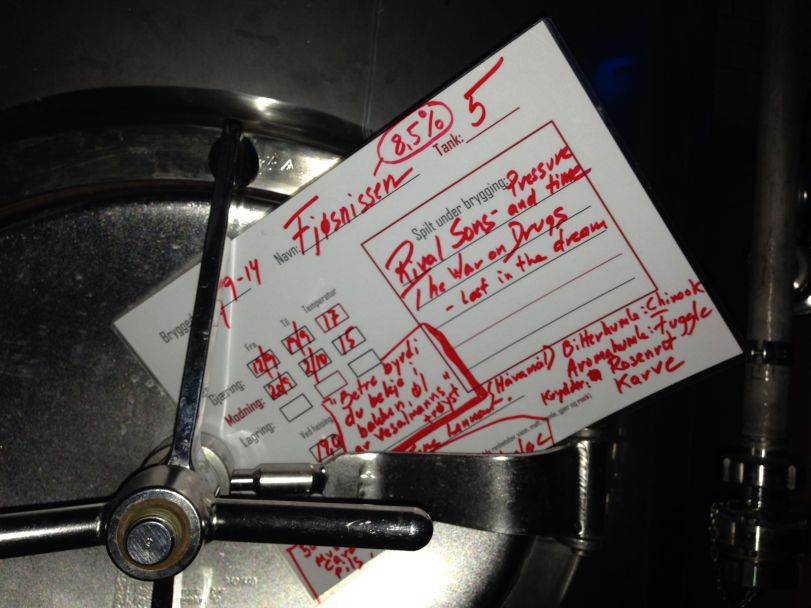 8,5%
Navn: Fjøsnissen
Tank: 5
9-14
Spilt under brygging: Pressure
Rival Sons - and time
The War on Drugs
- Lost in the dream
Fra Til Temperatur
Gjæring: 12/9 19/9 17
Modning: 20/9 2/10 15
Lagring:
Ved heising
19,0
"Betre byrdi
du bekje i
bakken, øl
er vesalmanns"
trøyst
(Håvamål)
Bitterhumle: Chinook
Aromahumle: Fuggle
Krydder: Rosenrot
Karve